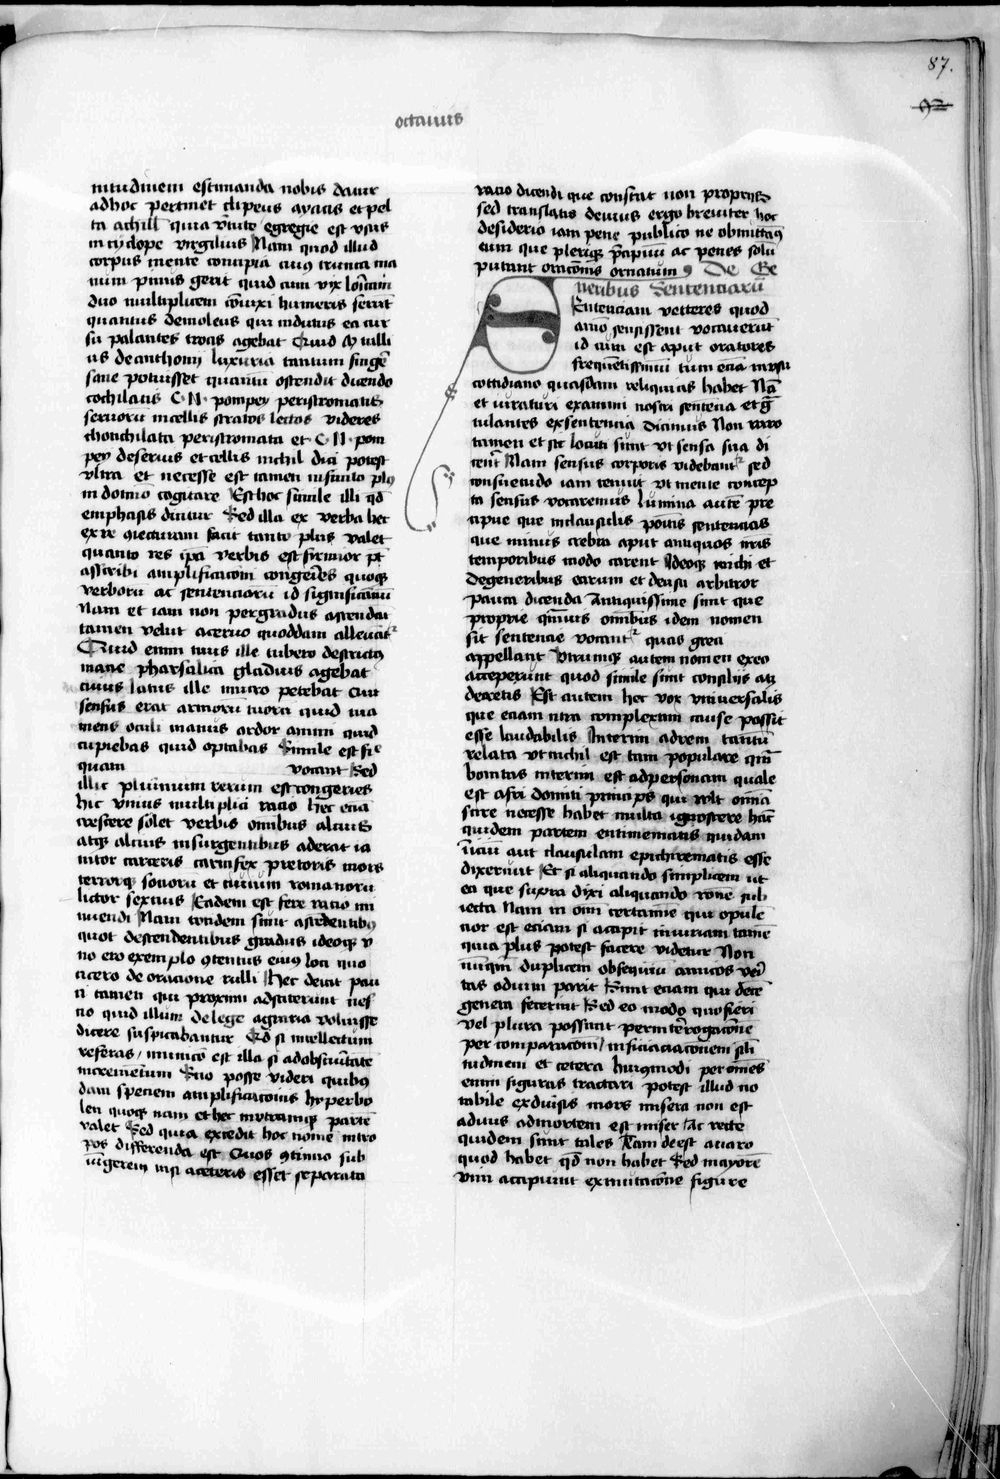 87.
92
octauus
nitudinem estimanda nobis datur
adhoc pertinet clipeus ayacis et pel
ta achill quia vtute egregie est vsus
in cyclope virgilius Nam quod illud
corpus mente concipiā cuiꝯ trunca ma
num pinus gerit quid cum vix loricam
duo multiplicem cōnixi humeris ferrēt
quantus demoleus qui indutus ea cur
su palantes troas agebat Quid M tulli
us deanthonij luxuria tantum finge
sane potuisset quantū ostendit dicendo
cochilatis C· N· pompey peristromatis
seruorū incellis stratos lectos videres
chonchilata peristromata et C· N· pom
pey deserius et cellis nichil dici potest
vltra et necesse est tamen infinito plꝯ
in domino cogitare Est hoc simile illi qd̄
emphasis dicitur Sed illa ex verba hec
ex re ꝯiecturam facit tanto plus valet
quanto res ip̄a verbis est firmior pt̄
ascribi amplificacōni congeries quoqꝫ
verborū ac sentenciarū id significanciū
Nam et iam non pergradus ascendāt
tamen velut aceruo quoddam alleuāt̄
Quid enim tuus ille tubero destrictꝯ
inacie pharsalica gladius agebat
cuius latus ille mucro petebat cui
sensus erat armorū tuorū quid tua
mens oculi manus ardor animi quid
cupiebas quid optabas Simile est fi
quam vocant Sed
illic pluimum rerum est congeries
hic vnius multiplici racio Hec eciā
crescere solet verbis omibus alcius
atqꝫ alcius insurgentibus aderat ia
nitor carceris carnifex pretoris mors
terrorqꝫ sociorū et ciuium romanorū
lictor sextius Eadem est fere racio mi
nuendi Nam totidem sunt ascedentibꝯ
quot descendentibus gradus ideoqꝫ v
no ero exemplo ꝯtentus eius loci quo
cicero de oracione rulli Hec dicit pau
ci tamen qui proximi adstiterunt nes
cio quid illum de lege agraria voluisse
dicere suspicabantur Qd̄ si intellectum
referas/ minucō est illa si adobscuritatē
incremētum Scio posse videri quibꝯ
dam speciem amplificacōnis hyperbo
len quoqꝫ nam et hec inutramqꝫ partē
valet Sed quia excedit hoc nomē intro
pos differenda est Quos ꝯtinuo sub
iūgerem nisi aceteris esset separata
racio dicendi que constat non proprijs
sed translatis demus ergo breuiter hoc
desiderio iam pene publico ne obmittaꝯ
eum que pleriqꝫ p̄cipuū ac penes solū
putant oracōnis ornatum De Ge
neribus Sentenciarū
Entenciam vetteres quod
aīo sensissent vocauerūt
id cum est aput oratores
frequētissimū tum eciā inusu
cottidiano quasdam reliquias habet Nā
et iuraturi exanimi nostri sentencia et g̃
tulantes exsentencia dicimus Non raro
tamen et sic locuti sunt vt sensa sua di
cent Nam sensus corporis videbant̄ sed
consuetudo iam tenuit vt mente concep
ta sensus vocaremus Lumina autē pre
cipue que inclausulis positis sentencias
que minus crebra aput antiquos nr̄is
temporibus modo carent Ideoqꝫ michi et
degeneribus earum et deusu arbitror
pauca dicenda Antiquissime sunt que
proprie q̄muis omibus idem nomen
sit sentencie vocant̄ quas greci
appellant Vtrumqꝫ autem nomen exeo
acceperunt quod simile sunt consilijs aut
decretis Est autem hec vox vniuersalis
que eciam citra complexum cause possit
esse laudabilis Interim adrem tantū
relata vt nichil est tam populare q̄m
bonitas interim est adpersonam quale
est afri domiti princeps qui vult omiā
scire necesse habet multa ignoscere hāc
quidem partem entimematis quidam
iniciū aut clausulam epichirematis esse
dixerunt Et si aliquando simplicem ut
ea que supra dixi aliquando rōne sub
iecta Nam in omī certamīe qui opulē
cior est eciam si accipit iniuriam tamē
quia plus potest facere videtur Non
nunq̄m duplicem obsequiū amicos veri
tas odium parit Sunt eciam qui decē
genera fecerint Sed eo modo quo fieri
vel plura possunt perinterogacōne
per comparacōnē/ inficiaciacōnem sili
tudinem et cetera huiꝯmodi per omēs
enim figuras tractari potest illud no
tabile exduisis mors misera non est
aditus admortem est miser Ac recte
quidem sunt tales Tam deest auaro
quod habet qd̄ non habet Sed maiorē
vim accipiunt exmutacōne figure